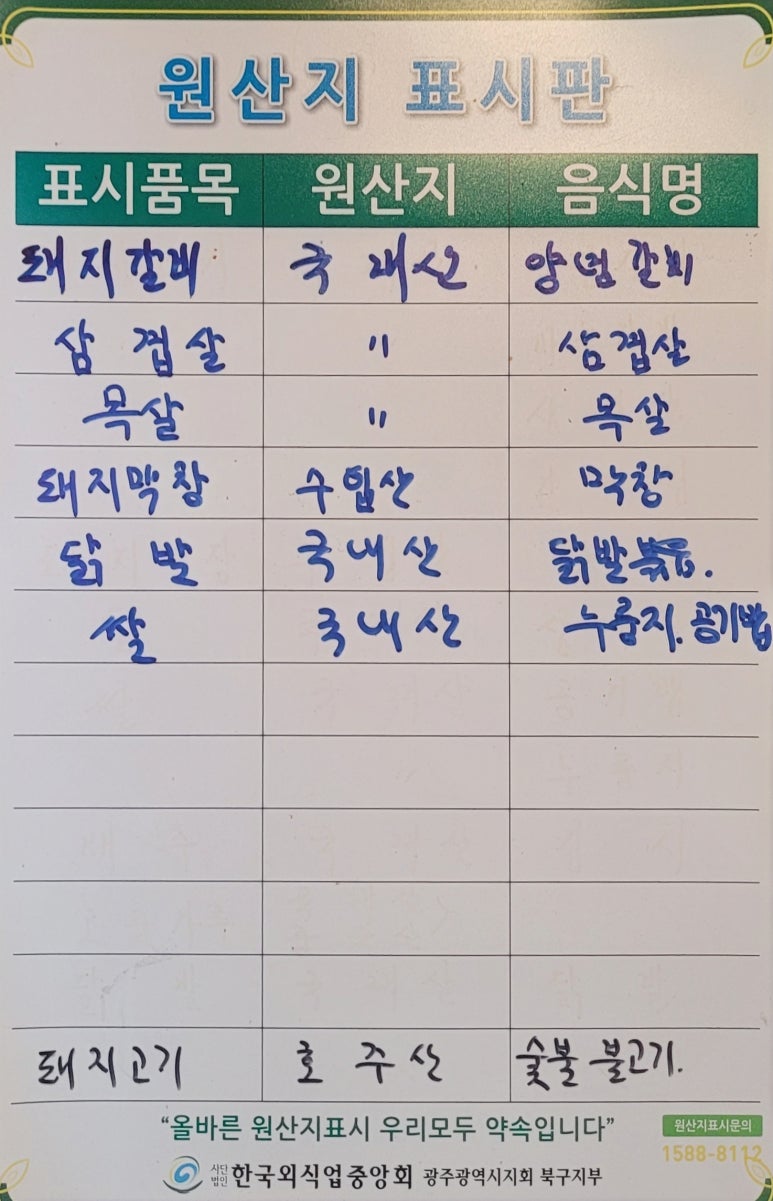 원산지 표시판
표시품목 원산지 음식명
돼지갈비 국내산 양념갈비
삼겹살 〃 삼겹살
목살 〃 목살
돼지막창 수입산 막창
닭발 국내산 닭발볶음.
쌀 국내산 누룽지. 공기밥
돼지고기 호주산 숯불 불고기.
“올바른 원산지표시 우리모두 약속입니다”
원산지표시문의
1588-8112
사단법인 한국외식업중앙회 광주광역시지회 북구지부